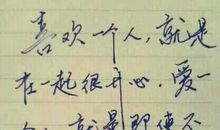 喜欢一个人,就是
在一起很开心,爱一
个人,就是即使不